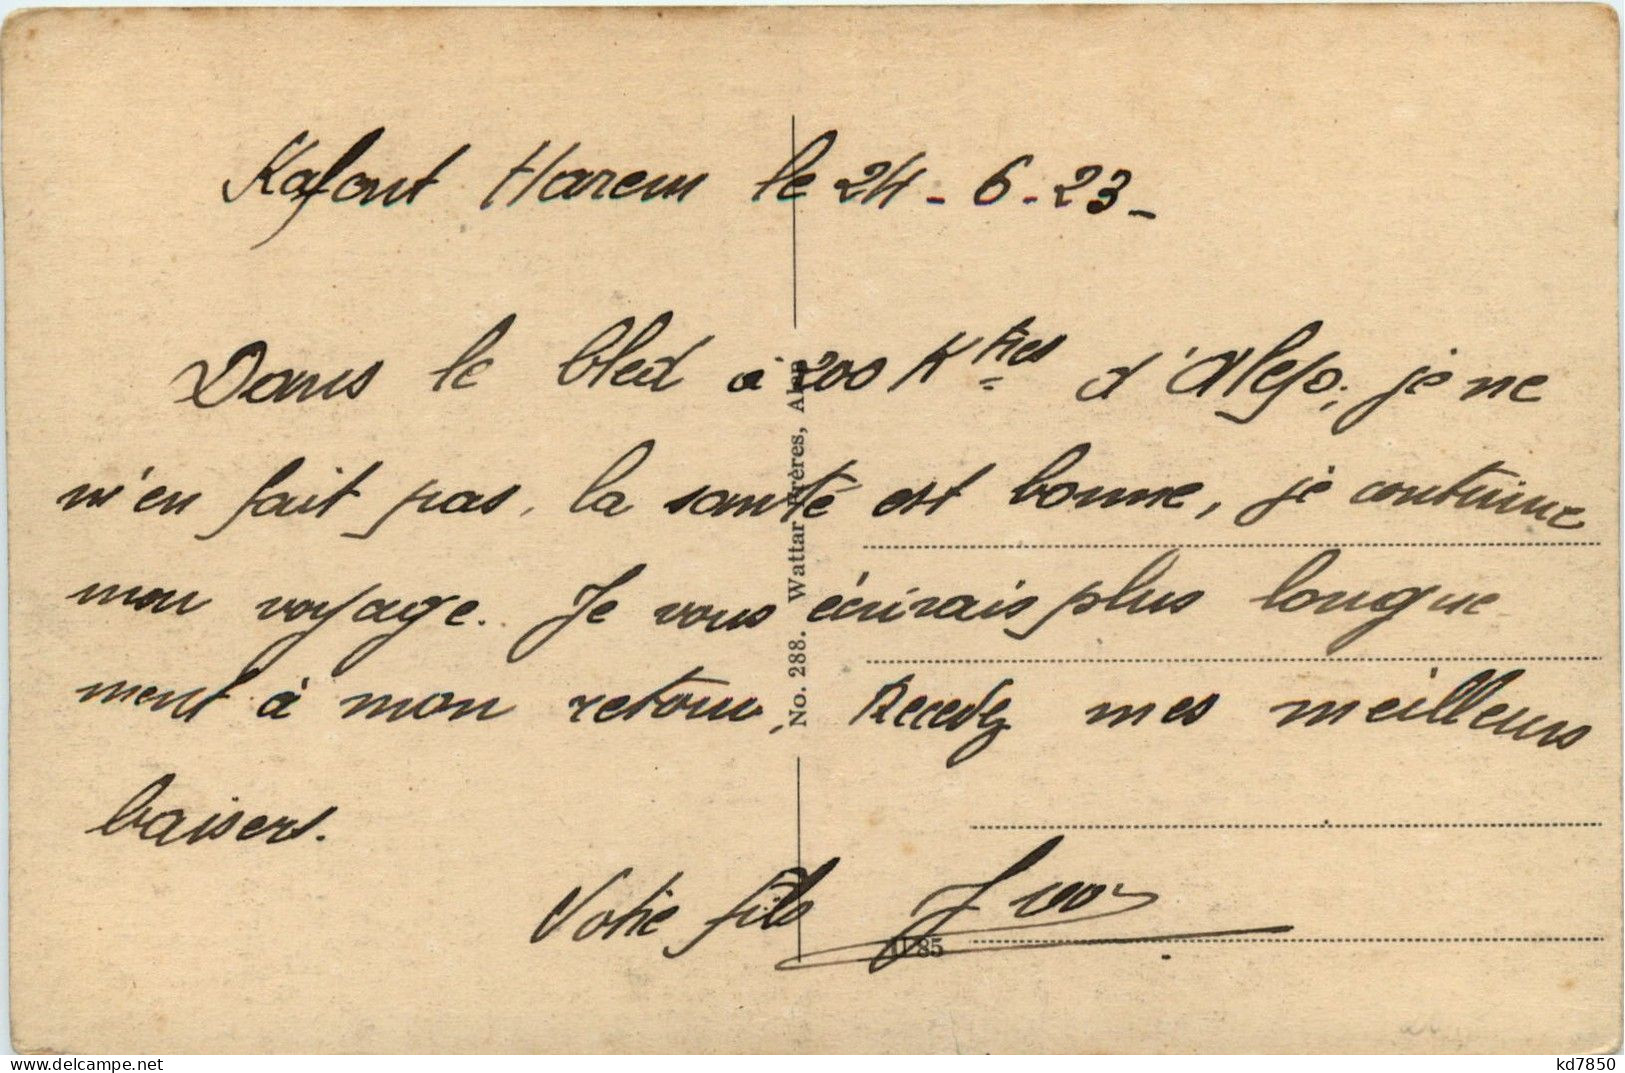 Kafont Harem le 24-6-23-
Dans le bled à 200 Ktres d'Alep, je ne
m'en fait pas, la santé est bonne, je continue
mon voyage. Je vous écrirais plus longue
ment à mon retour, Recevez mes meilleurs
baisers.
Votre fils
No. 288. Wattar Frères, Alep
85
www.delcampe.net
kd7850